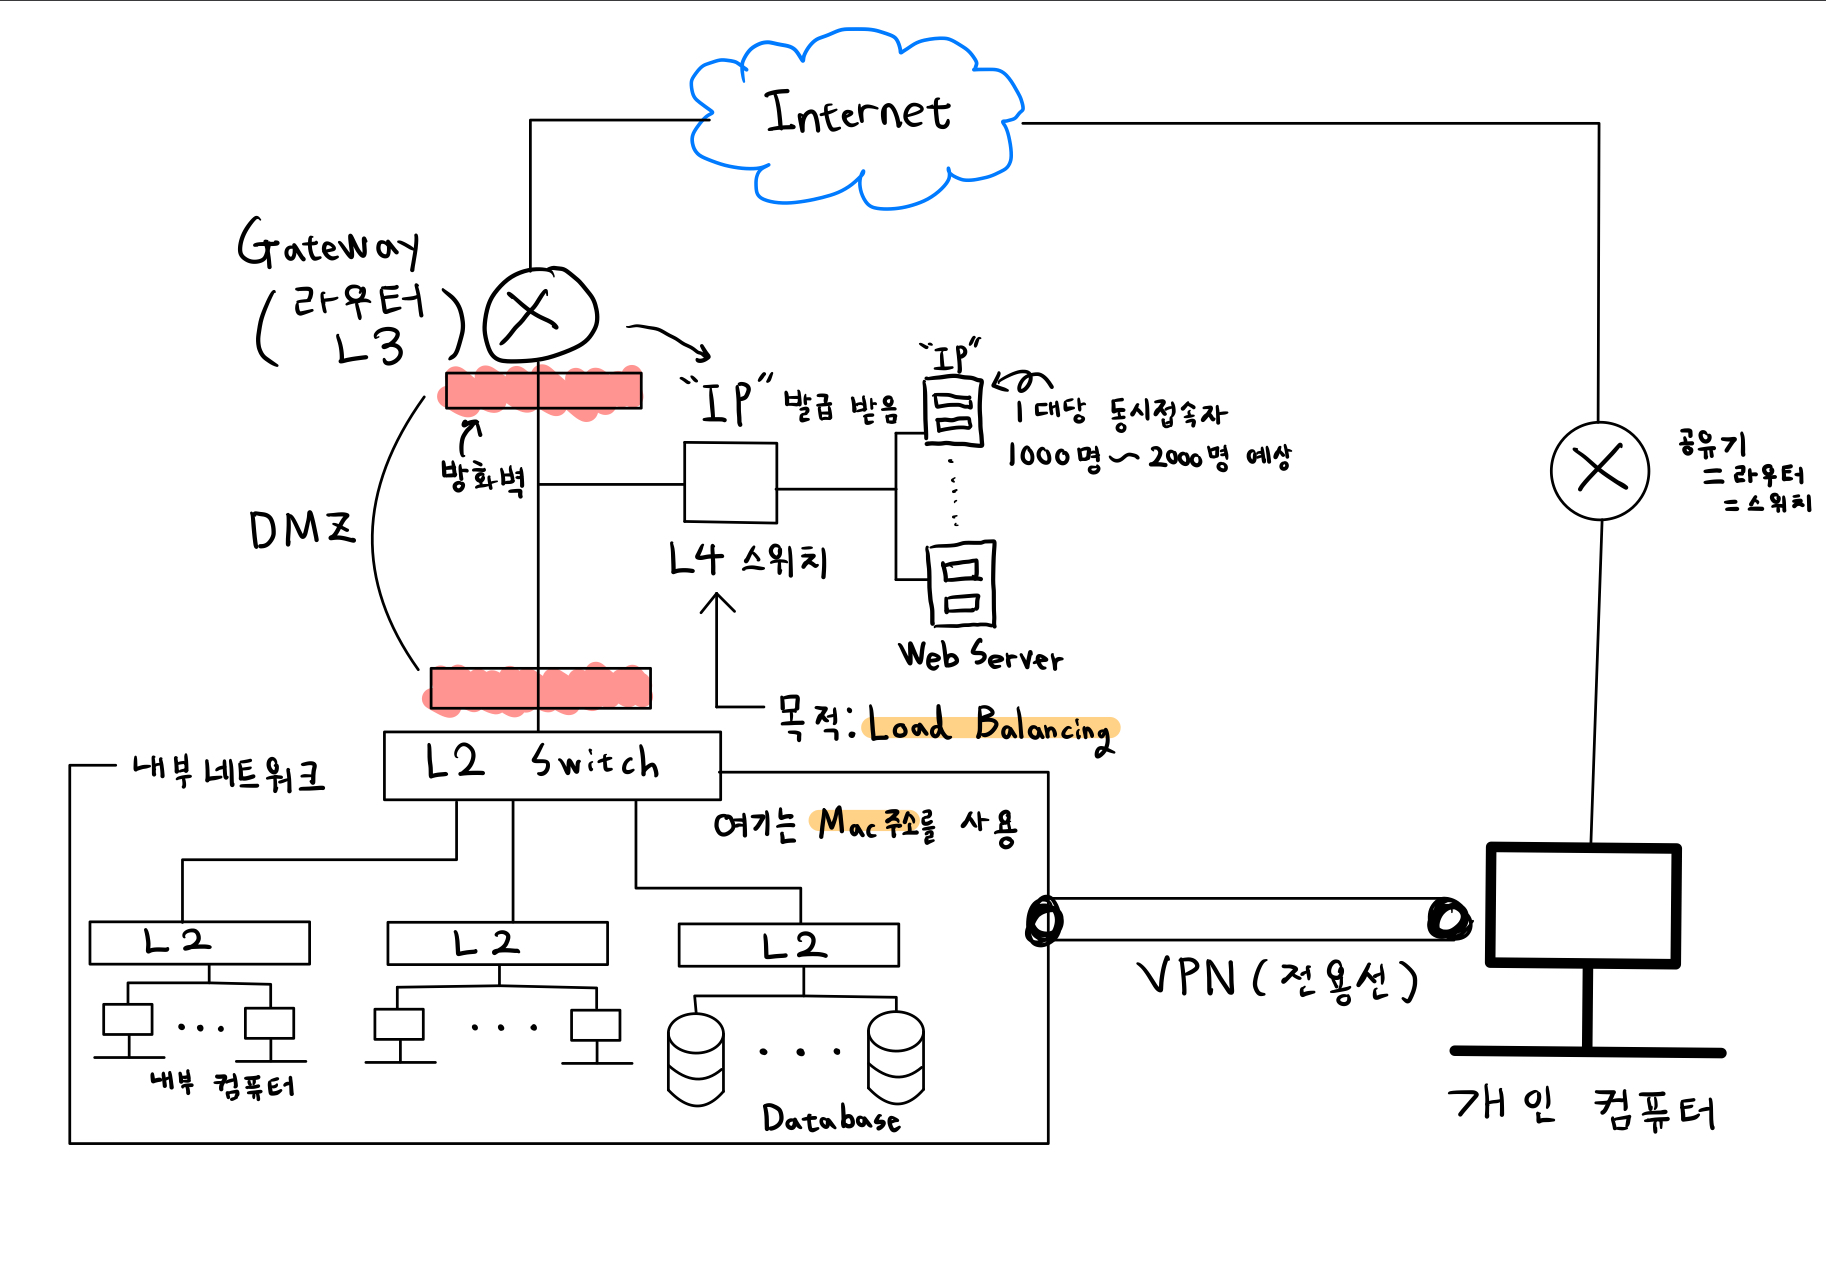 Internet
Gateway
(라우터
L3)
"IP" 발급 받음
"IP"
1 대당 동시접속자
1000명 ~ 2000명 예상
방화벽
DMZ
L4 스위치
Web Server
목적: Load Balancing
공유기
= 라우터
= 스위치
내부 네트워크
L2 Switch
여기는 Mac주소를 사용
L2
L2
L2
내부 컴퓨터
Database
VPN (전용선)
개인 컴퓨터